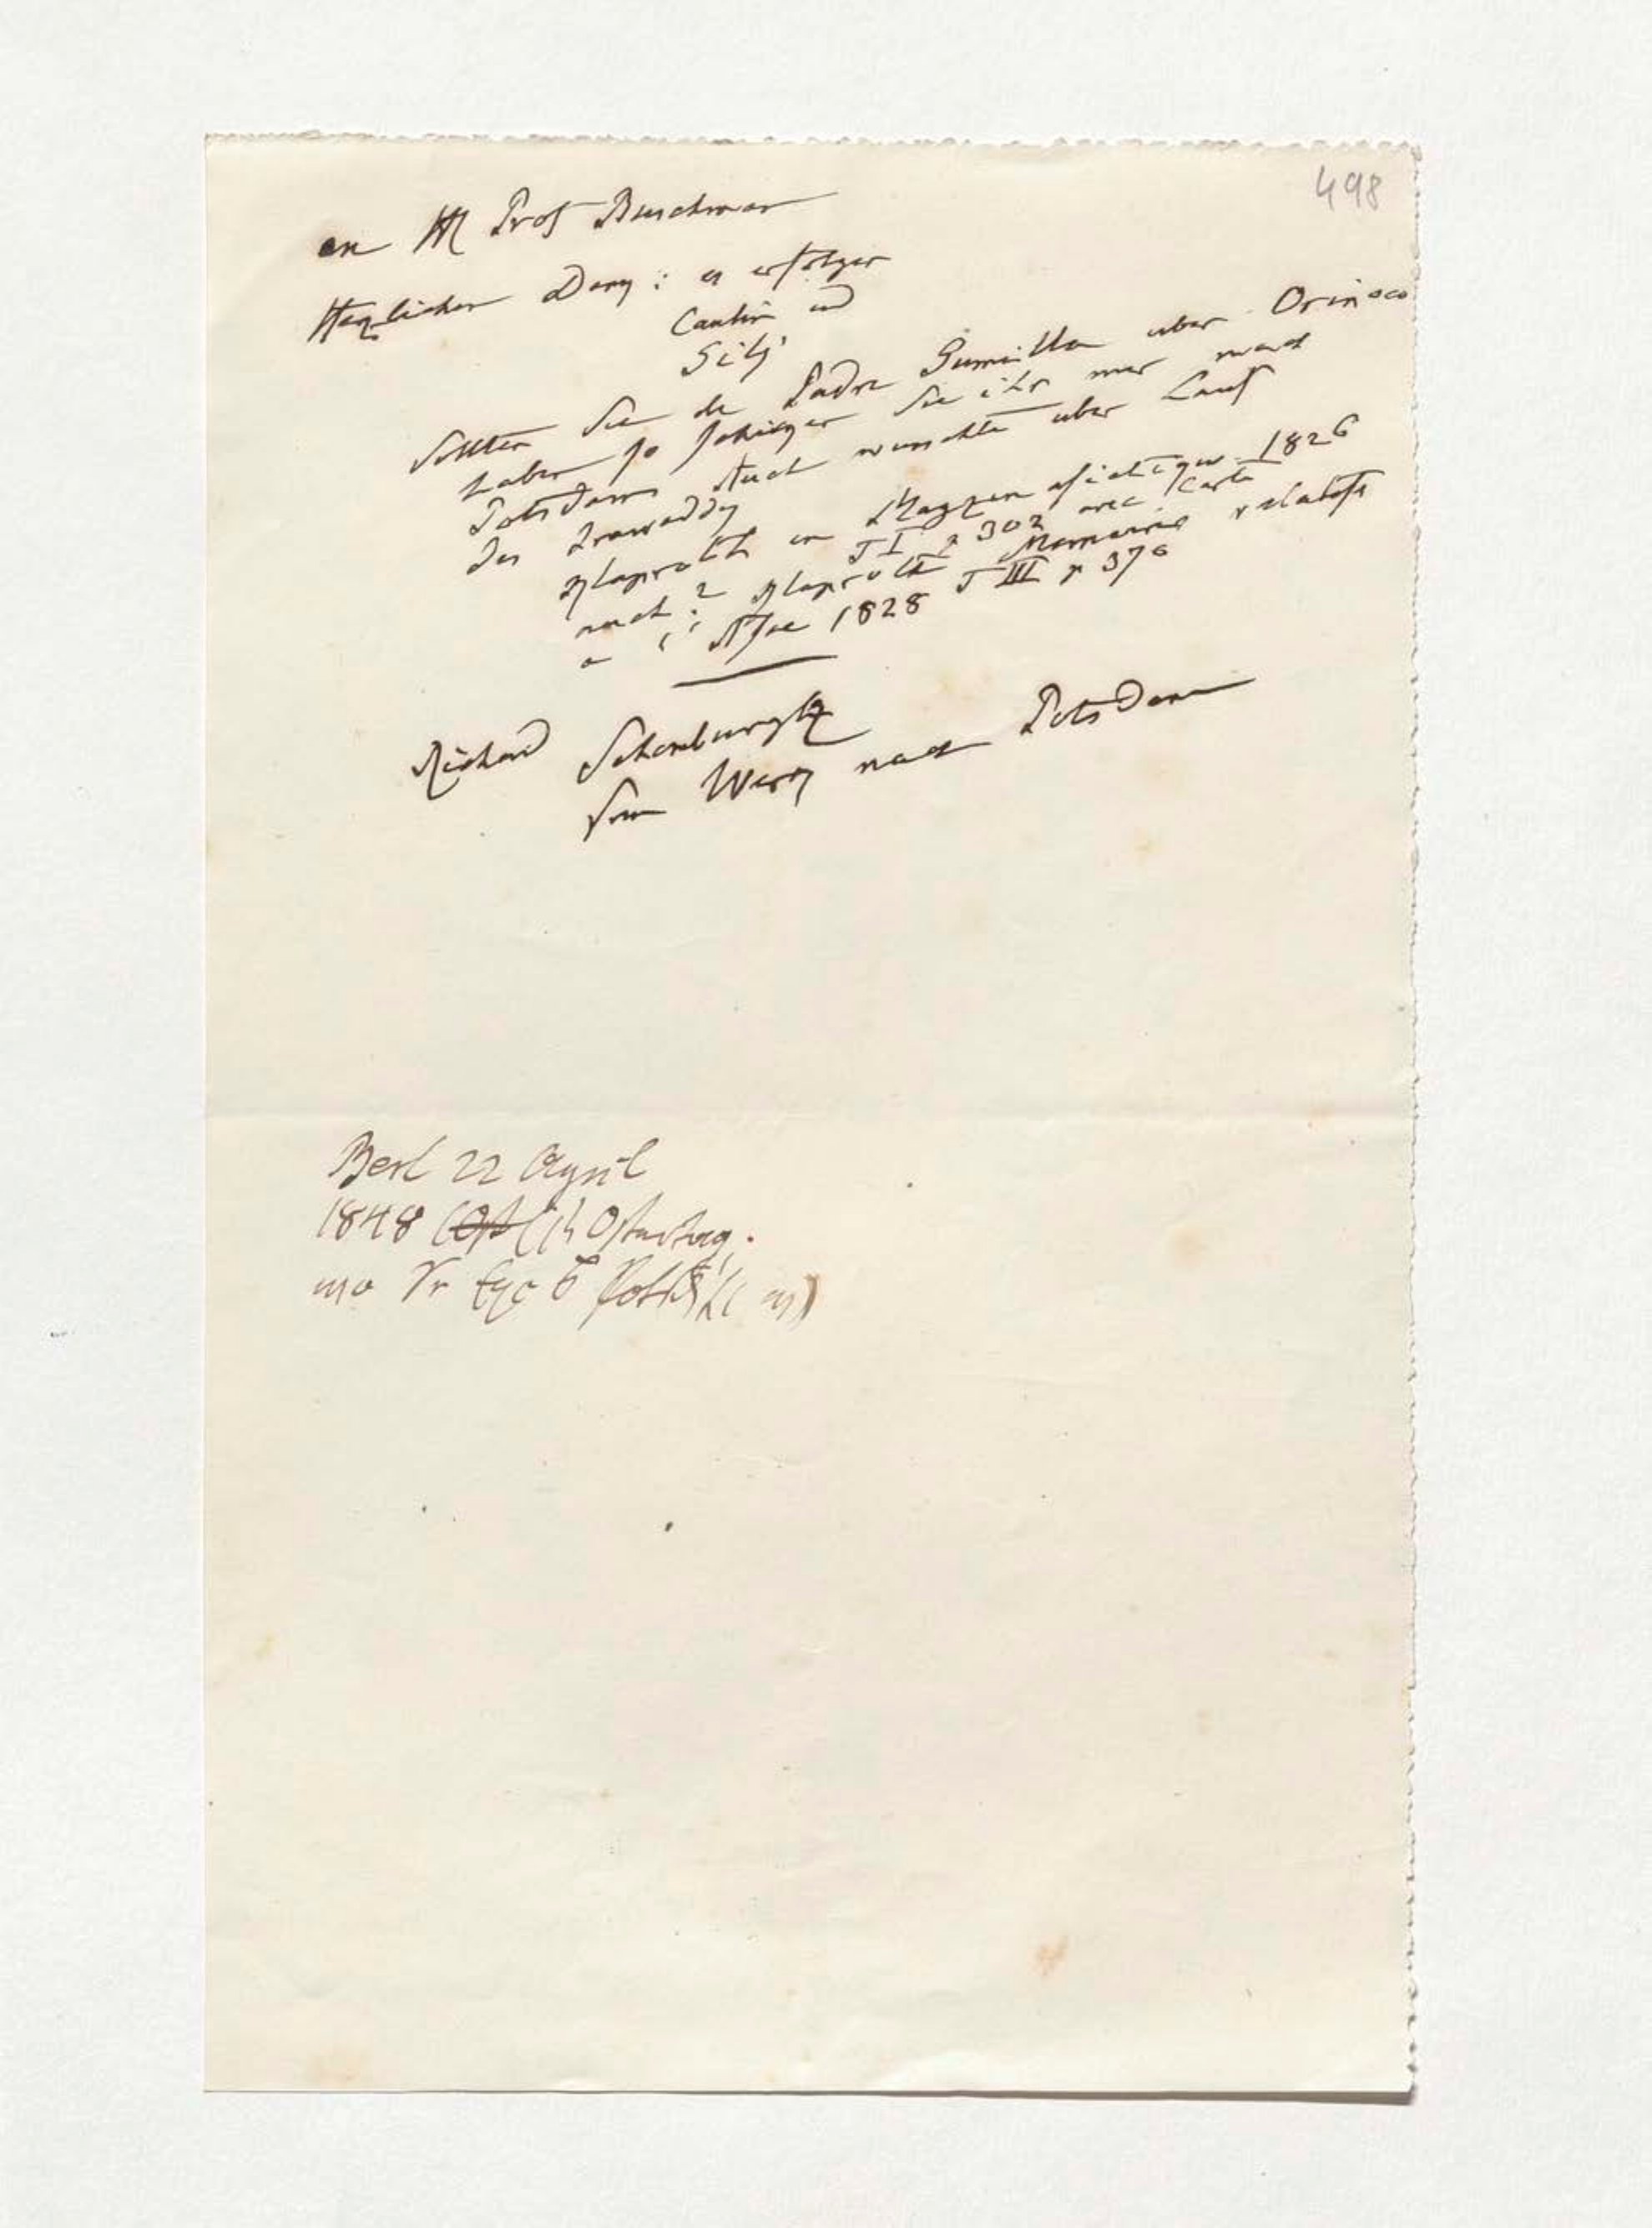 498
an H Prof Buschman
Herzlichen Dank: es erfolgen
Caulin und
Gilij
Sollten Sie den Padre Gumilla über Orinoco
haben so schicken Sie ihn mir nach
Potsdam Auch wünschte über Lauf
des Irawaddy
Klaproth im Magazin asiatique 1826
T I p 302 avec Carte
nach 2 Klaproth Memoires relatifs
a l'Asie 1828 T III p 376
Richard Schomburgk
sein Werk nach Potsdam
Berl 22 April
1848 Ostertag.